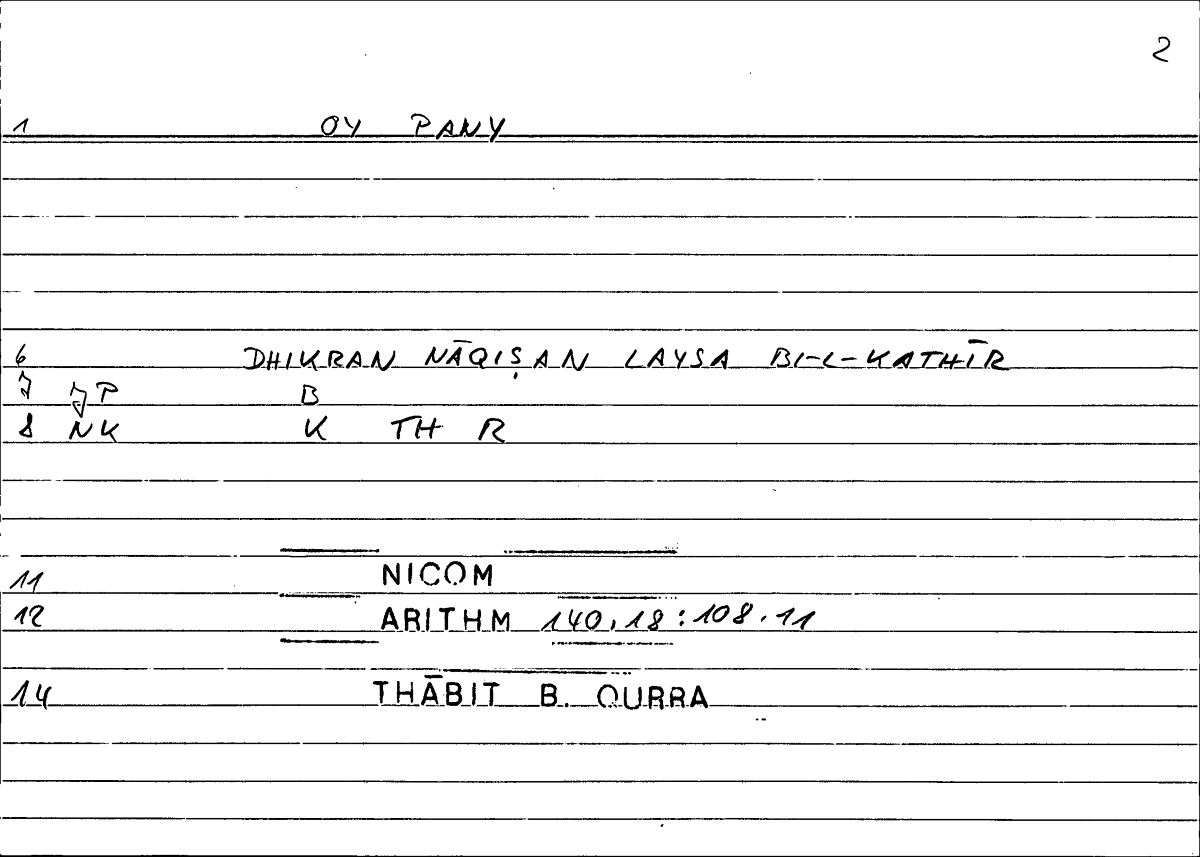 2
1 OY PANY
6 DHIKRAN NĀQIṢAN LAYSA BI-L-KATHĪR
7 JP B
8 NK K TH R
11 NICOM
12 ARITHM 140,18:108.11
14 THĀBIT B. QURRA